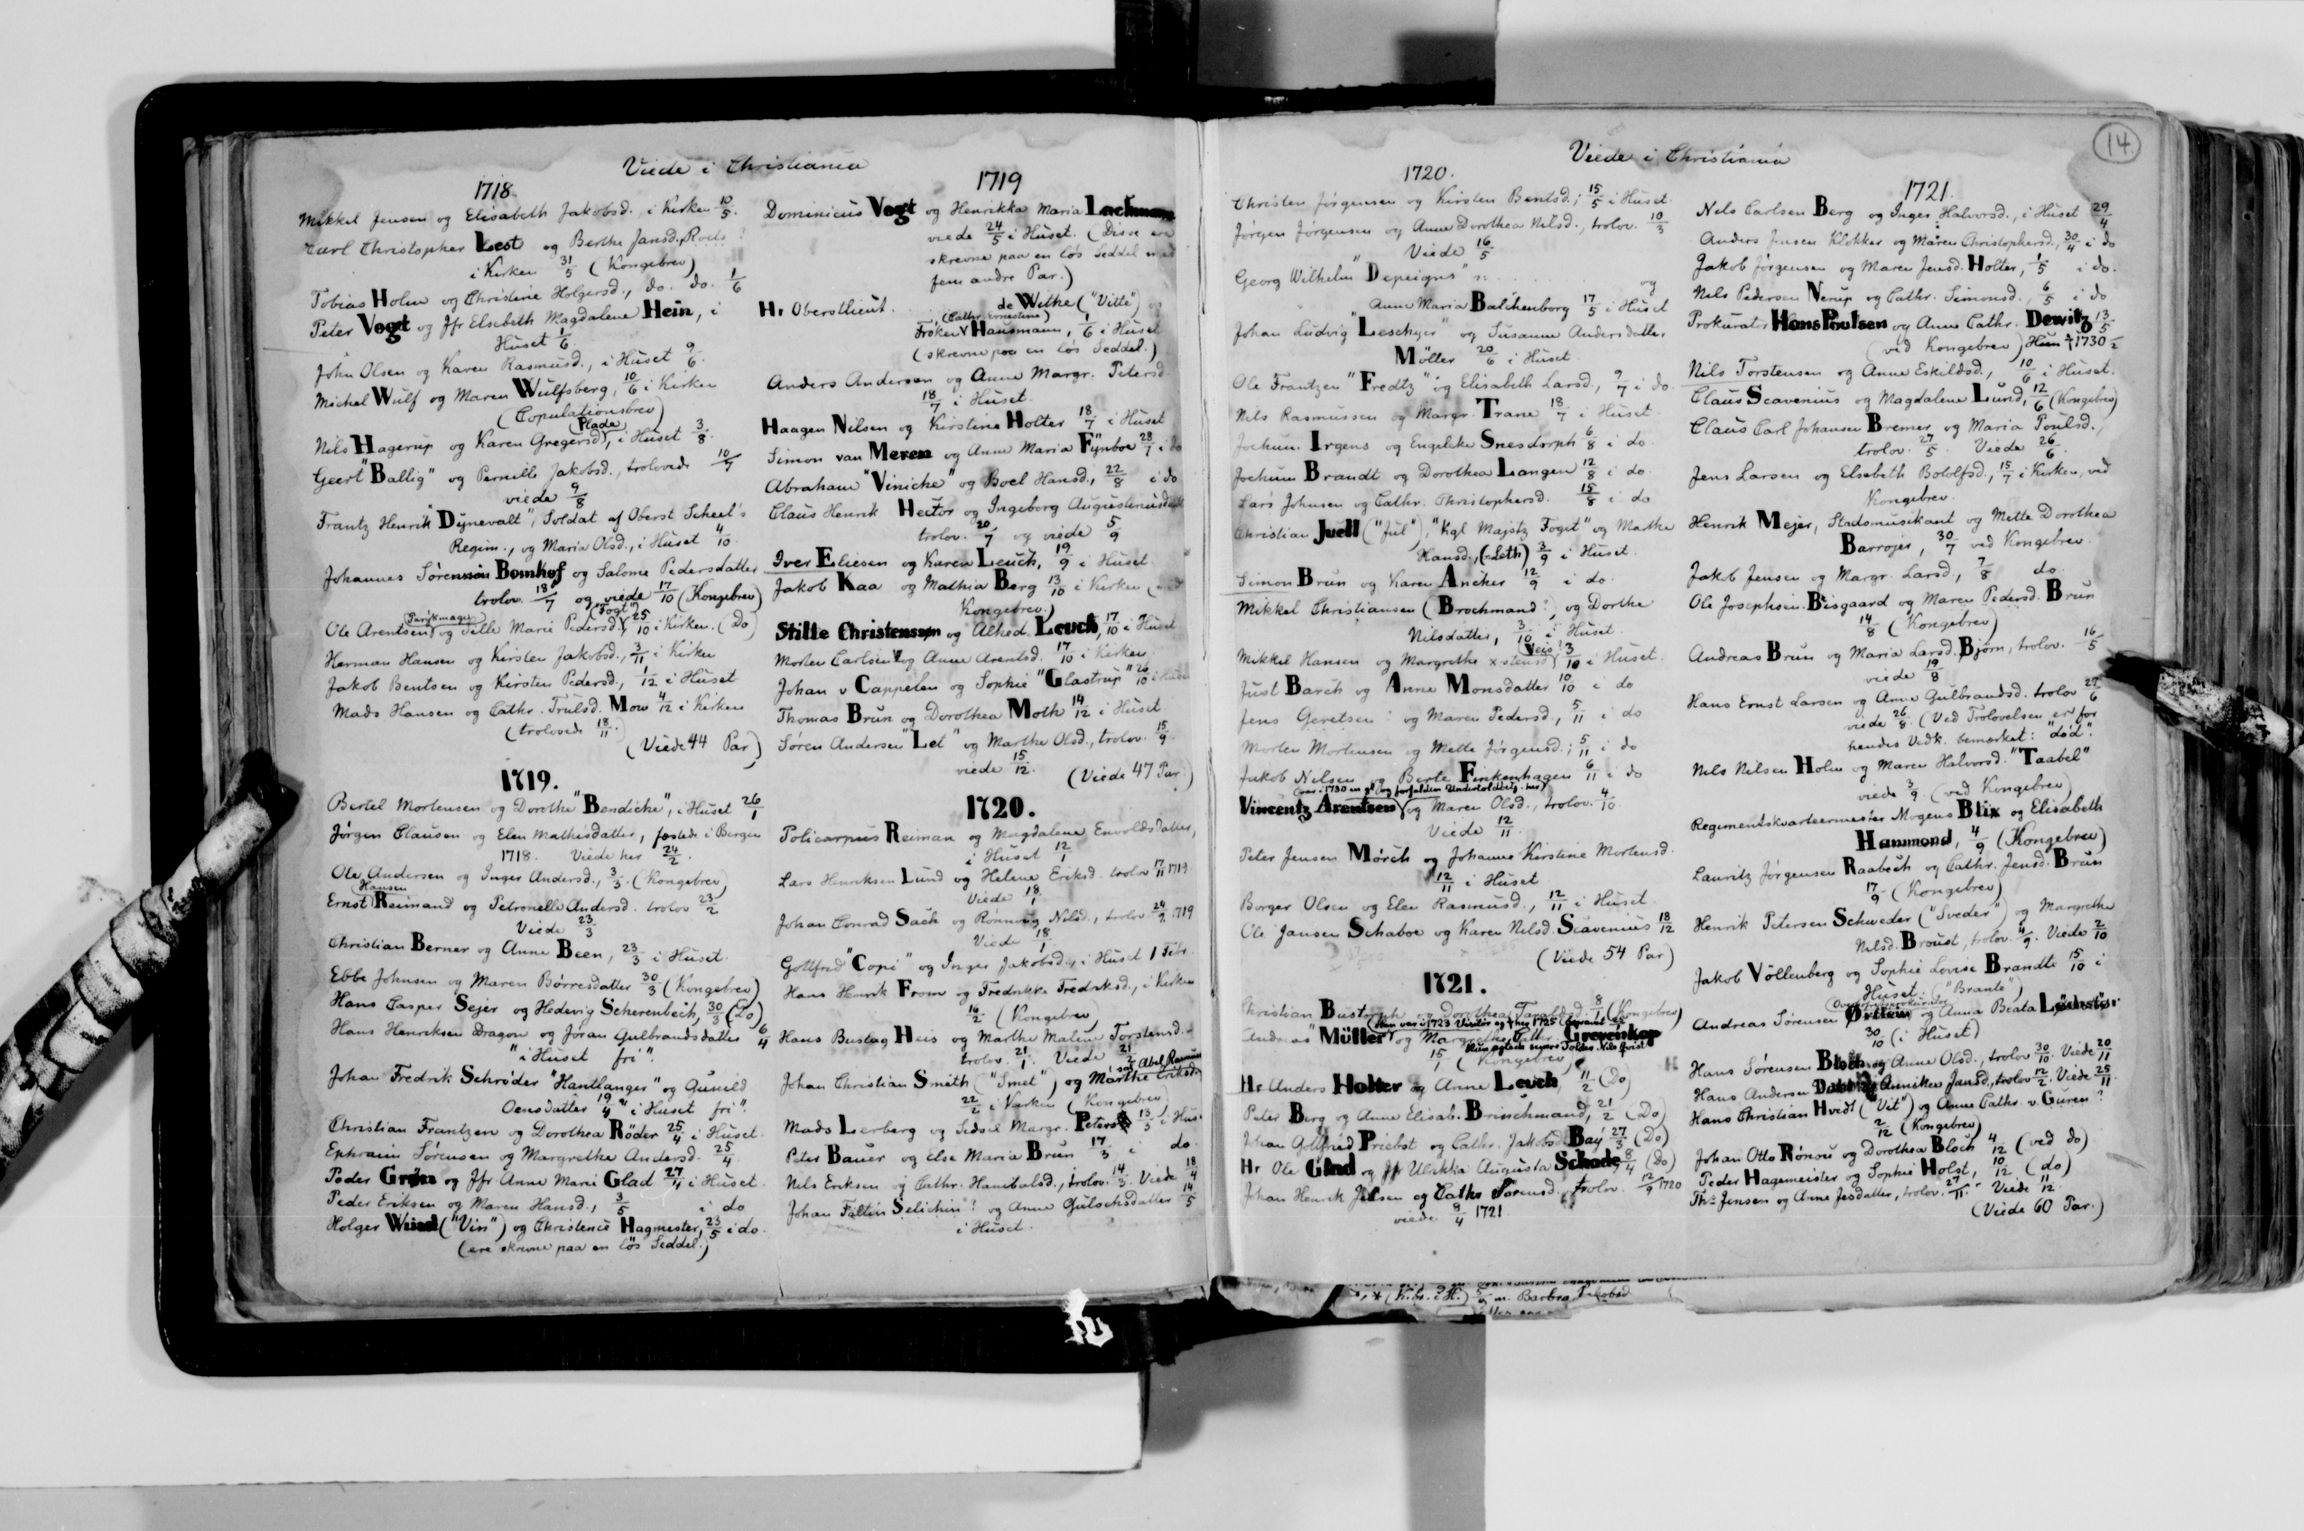 Viede i Christiania
1718.
Mikkel Jensen og Elisabeth Jakobsd., i Kirken 10/5.
Carl Christopher Lest og Berthe Jansd. Roels ?
i Kirken 31/5 (Kongebrev)
Tobias Holm og Christine Holgersd., do. do. 1/6
Peter Vogt og Jfr Elsebeth Magdalene Hein, i
Huset 1/6.
John Olsen og Karen Rasmusd., i Huset 9/6.
Michel Wulf og Maren Wulfsberg, 10/6 i Kirken
(Copulationsbrev)
(Plade)
Nils Hagerup og Karen Gregersd, i Huset 3/8.
Geert "Ballig" og Pernille Jakobsd., trolovede 10/7
viede 9/8
Frantz Henrik "Dynevalt", Soldat af Oberst Scheel's
Regim., og Maria Olsd., i Huset 4/10.
Johannes Sørensøn Bomhof og Salome Pedersdatter
trolov. 18/7 og viede 17/10 (Kongebrev)
Parykmager ("Fogt")
Ole Arentsen og Sille Marie Pedersd., 25/10 i Kirken. (Do)
Herman Hansen og Kirsten Jakobsd., 3/11 i Kirken
Jakob Bentsen og Kirsten Pedersd., 1/12 i Huset
Mads Hansen og Cathr. Trulsd. Mow 4/12 i Kirken
(trolovede 18/11.)
(Viede 44 Par)
1719.
Bertel Mortensen og Dorothe "Bendicke", i Huset 26/1
Jørgen Clausen og Elen Mathisdatter, fæstede i Bergen
1718. Viede her 24/2.
Ole Andersen og Inger Andersd., 3/3. (Kongebrev)
Hansen
Ernst Reimand og Petronelle Andersd. trolov 23/2
Viede 23/3
Christian Berner og Anne Been, 23/3 i Huset.
Ebbe Johnsen og Maren Børresdatter 30/3 (Kongebrev)
Hans Casper Sejer og Hedevig Scherenbech, 30/3 (Do)
Hans Henriksen Dragon og Jöran Gulbrandsdatter 6/4
"i Huset fri".
Johan Fredrik Schrøder "Hantlanger" og Gunild
Oensdatter 19/4 "i Huset fri".
Christian Frantzen og Dorothea Röder 25/4 i Huset.
Ephraim Sörensen og Margrethe Andersd. 25/4.
Peder Grøn og Jfr Anne Mari Glad 27/4 i Huset.
Peder Eriksen og Maren Hansd., 3/5 i do
Holger Wind ("Vin") og Christence Hagmester, 23/5 i do.
(ere skrevne paa en løs Seddel.)
1719
Dominicus Vogt og Henrikka Maria Lachmann
viede 24/5 i Huset. (Disse ere
skrevne paa en løs Seddel med
fem andre Par.)
Hr Oberstlieut. de Withe ("Vitte") og
(Cathr. Ernestine)
Frøken Hausmann, 1/6 i Huset
(skrevne paa en løs Seddel.)
Anders Andersen og Anne Margr. Petersd
18/7 i Huset.
Haagen Nilsen og Kirstine Holter 18/7 i Huset
Simon van Meren og Anne Maria Fynboe 28/7 i do
Abraham "Vinicke" og Boel Hansd., 22/8 i do
Claus Henrik Hector og Ingeborg Augustinusdatt
trolov. 20/7 og viede 5/9
Iver Eliesen og Karen Leuch, 19/9 i Huset.
Jakob Kaa og Mathia Berg 13/10 i Kirken (ved
Kongebrev.)
Stille Christenssøn og Alhed. Leuch, 17/10 i Huset
Morten Carlsen og Anne Arentsd. 17/10 i Kirken.
Johan v Cappelen og Sophie "Glastrup" 26/10 i Huset
Thomas Brun og Dorothea Moth 14/12 i Huset.
Søren Andersen "Let" og Marthe Olsd., trolov. 15/9.
viede 15/12.
(Viede 47 Par.)
1720.
Policarpus Reiman og Magdalene Envoldsdatter,
i Huset 12/1
Lars Henriksen Lund og Helene Eriksd. trolov 17/11 1719
Viede 18/1
Johan Conrad Sack og Rønnoug Nilsd., trolov. 24/9 1719
Viede 18/1
Gottfred "Copi" og Inger Jakobsd., i Huset 1 Febr.
Hans Henrik From og Fredrikke Fredriksd., i Kirken
16/2 (Kongebrev)
Hans Bustag Heis og Marthe Malene Torstensd.
trolov. 21/1. Viede 21/2
Abel Rasmus
Johan Christian Smith ("Smet") og Marthe Eriksd.
22/2 i Kirken (Kongebrev)
Mads Lerberg og Sidsel Margr. Peters 13/3 i Hus
Peter Bauer og Else Maria Brun 17/3 i do.
Nils Eriksen og Cathr. Hanibalsd., trolov. 14/3. Viede 18/4
Johan Faltin Selichin? og Anne Gulichsdatter 14/5
i Huset.
Viede i Christiania
14.
1720.
Christen Jörgensen og Kirsten Bentsd.; 15/5 i Huset.
Jörgen Jörgensen og Anne Dorothea Nilsd., trolov. 10/3
Viede 16/5
Georg Wilhelm "Depeigns" og
Anne Maria Balchenborg 17/5 i Huset
Johan Ludvig "Leschyer" og Susanne Andersdatter
Möller 20/6 i Huset
Ole Frantzen "Fredtz" og Elisabeth Larsd., 9/7 i do.
Nils Rasmussen og Margr. Trane 18/7 i Huset.
Jochum Irgens og Engelike Snesdorph 6/8 i do.
Jochum Brandt og Dorothea Langen 12/8 i do.
Lars Johnsen og Cathr. Christophersd. 15/8 i do
Christian Juell ("Jul"), "Kgl Majstz Fogit" og Marthe
Hansd. (Leth) 3/9 i Huset.
Simon Brun og Karen Ancher 12/9 i do.
Mikkel Christiansen (Brochmand?) og Dorthe
Nilsdatter, 3/10 i Huset.
Veis?
Mikkel Hansen og Margrethe x stensd 3/10 i Huset.
Just Barch og Anne Monsdatter 10/10 i do
Jens Geretsen? og Maren Pedersd., 5/11 i do
Morten Mortensen og Mette Jörgensd.; 5/11 i do
Jakob Nilsen og Berte Finkenhagen 6/11 i do
(var i 1730 en gl og forfalden Undertoldbetj. her)
Vincentz Arentsen og Maren Olsd., trolov. 4/10.
Viede 12/11
Peter Jensen Mørch og Johanne Kirstine Mortensd.
12/11 i Huset
Borger Olsen og Elen Rasmusd., 12/11 i Huset.
Ole Jansen Schaboe og Karen Nilsd. Scavenius 18/12
(Viede 54 Par)
1721.
Christian Bustorph og Dorothea Taraldsd. 8/1 (Kongebrev)
(Han var i 1723 Visitør og † her 1725
Andreas "Müller" og Margrethe Cathr. Grevenskop
15/1 (Kongebrev)
Hr Anders Holter og Anne Leuch, 11/2 (Do)
Peter Berg og Anne Elisab. Brinchmand, 21/2 (Do)
Johan Gottfried Priebst og Cathr. Jakobsd Bay 27/3 (Do)
Hr Ole Glad og Jfr Ulrikka Augusta Schade, 8/4 (Do)
Johan Henrik Jillsen og Cathr Sörensd, trolov. 12/9 1720
viede 9/4 1721.
1721.
Nils Carlsen Berg og Inger Halvorsd., i Huset 29/4
Anders Jensen Klokker og Maren Christophersd., 30/4 i do
Jakob Jörgensen og Maren Jensd. Holter, 1/5 i do.
Nils Pedersen Nerup og Cathr. Simonsd., 6/5 i do
Prokurator Hans Poulsen og Anne Cathr. Dewitz 13/5
(ved Kongebrev) Hun † 1730
Nils Torstensen og Anne Eskildsd., 10/6 i Huset.
Claus Scavenius og Magdalene Lund, 12/6 (Kongebrev)
Claus Carl Johansen Bremer og Maria Poulsd.,
trolov. 27/5. Viede 26/6.
Jens Larsen og Elsebeth Bolollfsd., 15/7 i Kirken, ved
Kongebrev.
Henrik Mejer, Stadsmusikant og Mette Dorothea
Barrojer, 30/7 ved Kongebrev.
Jakob Jensen og Margr. Larsd, 7/8 do
Ole Josephsen Bisgaard og Maren Pedersd. Brun
14/8 (Kongebrev)
Andreas Brun og Maria Larsd. Bjørn, trolov. 16/5
viede 19/8
Hans Ernst Larsen og Anne Gulbrandsd. trolov 27/6
viede 26/8. (Ved Trolovelsen er for
hendes Vedk. bemærket: "død".
Nils Nilsen Holm og Maren Halvorsd. "Taabel"
viede 3/9. (ved Kongebrev)
Regimentskvarteermester Mogens Blix og Elisabeth
Hammond, 4/9 (Kongebrev)
Lauritz Jörgensen Raabech og Cathr. Jensd. Brun
17/9 (Kongebrev)
Henrik Petersen Schweder ("Sveder") og Margrethe
Nilsd. Broust, trolov. 4/9. Viede 2/10
Jakob Völlenberg og Sophie Lovise Brandt 15/10 i
Huset. ("Brante")
Andreas Sørensen og Anna Beata
30/10 (i Huset)
Hans Sørensen Bloch og Anne Olsd., trolov 30/10. Viede 20/11
Hans Andersen og Anniken Jansd., trolov 12/2. Viede 25/11.
Hans Christian Hvidt ("Vit") og Anne Cathr. v. Guren?
2/12 (Kongebrev)
Johan Otto Rönou og Dorothea Bloch 4/12 (ved do)
Peder Hagemeister og Sophie Holst, 10/12 (do)
Ths Jensen og Anne Jesdatter, trolov. 27/11. Viede 11/12.
(Viede 60 Par.)